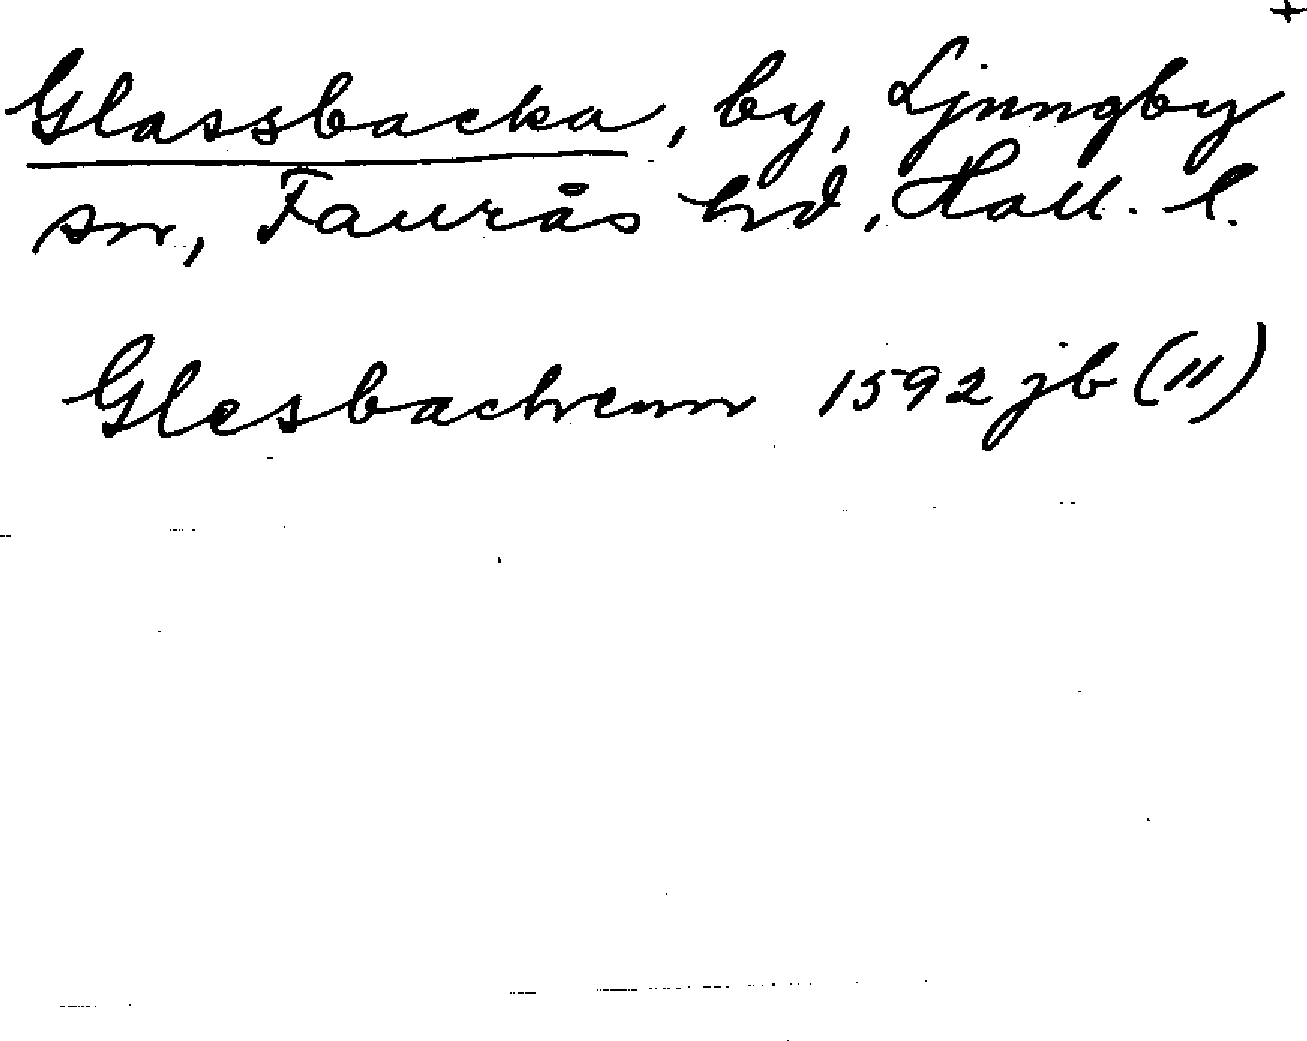 +
Glassbacka, by, Ljungby
sn, Faurås hd, Hall. l.
Glesbackenn 1592 jb (")